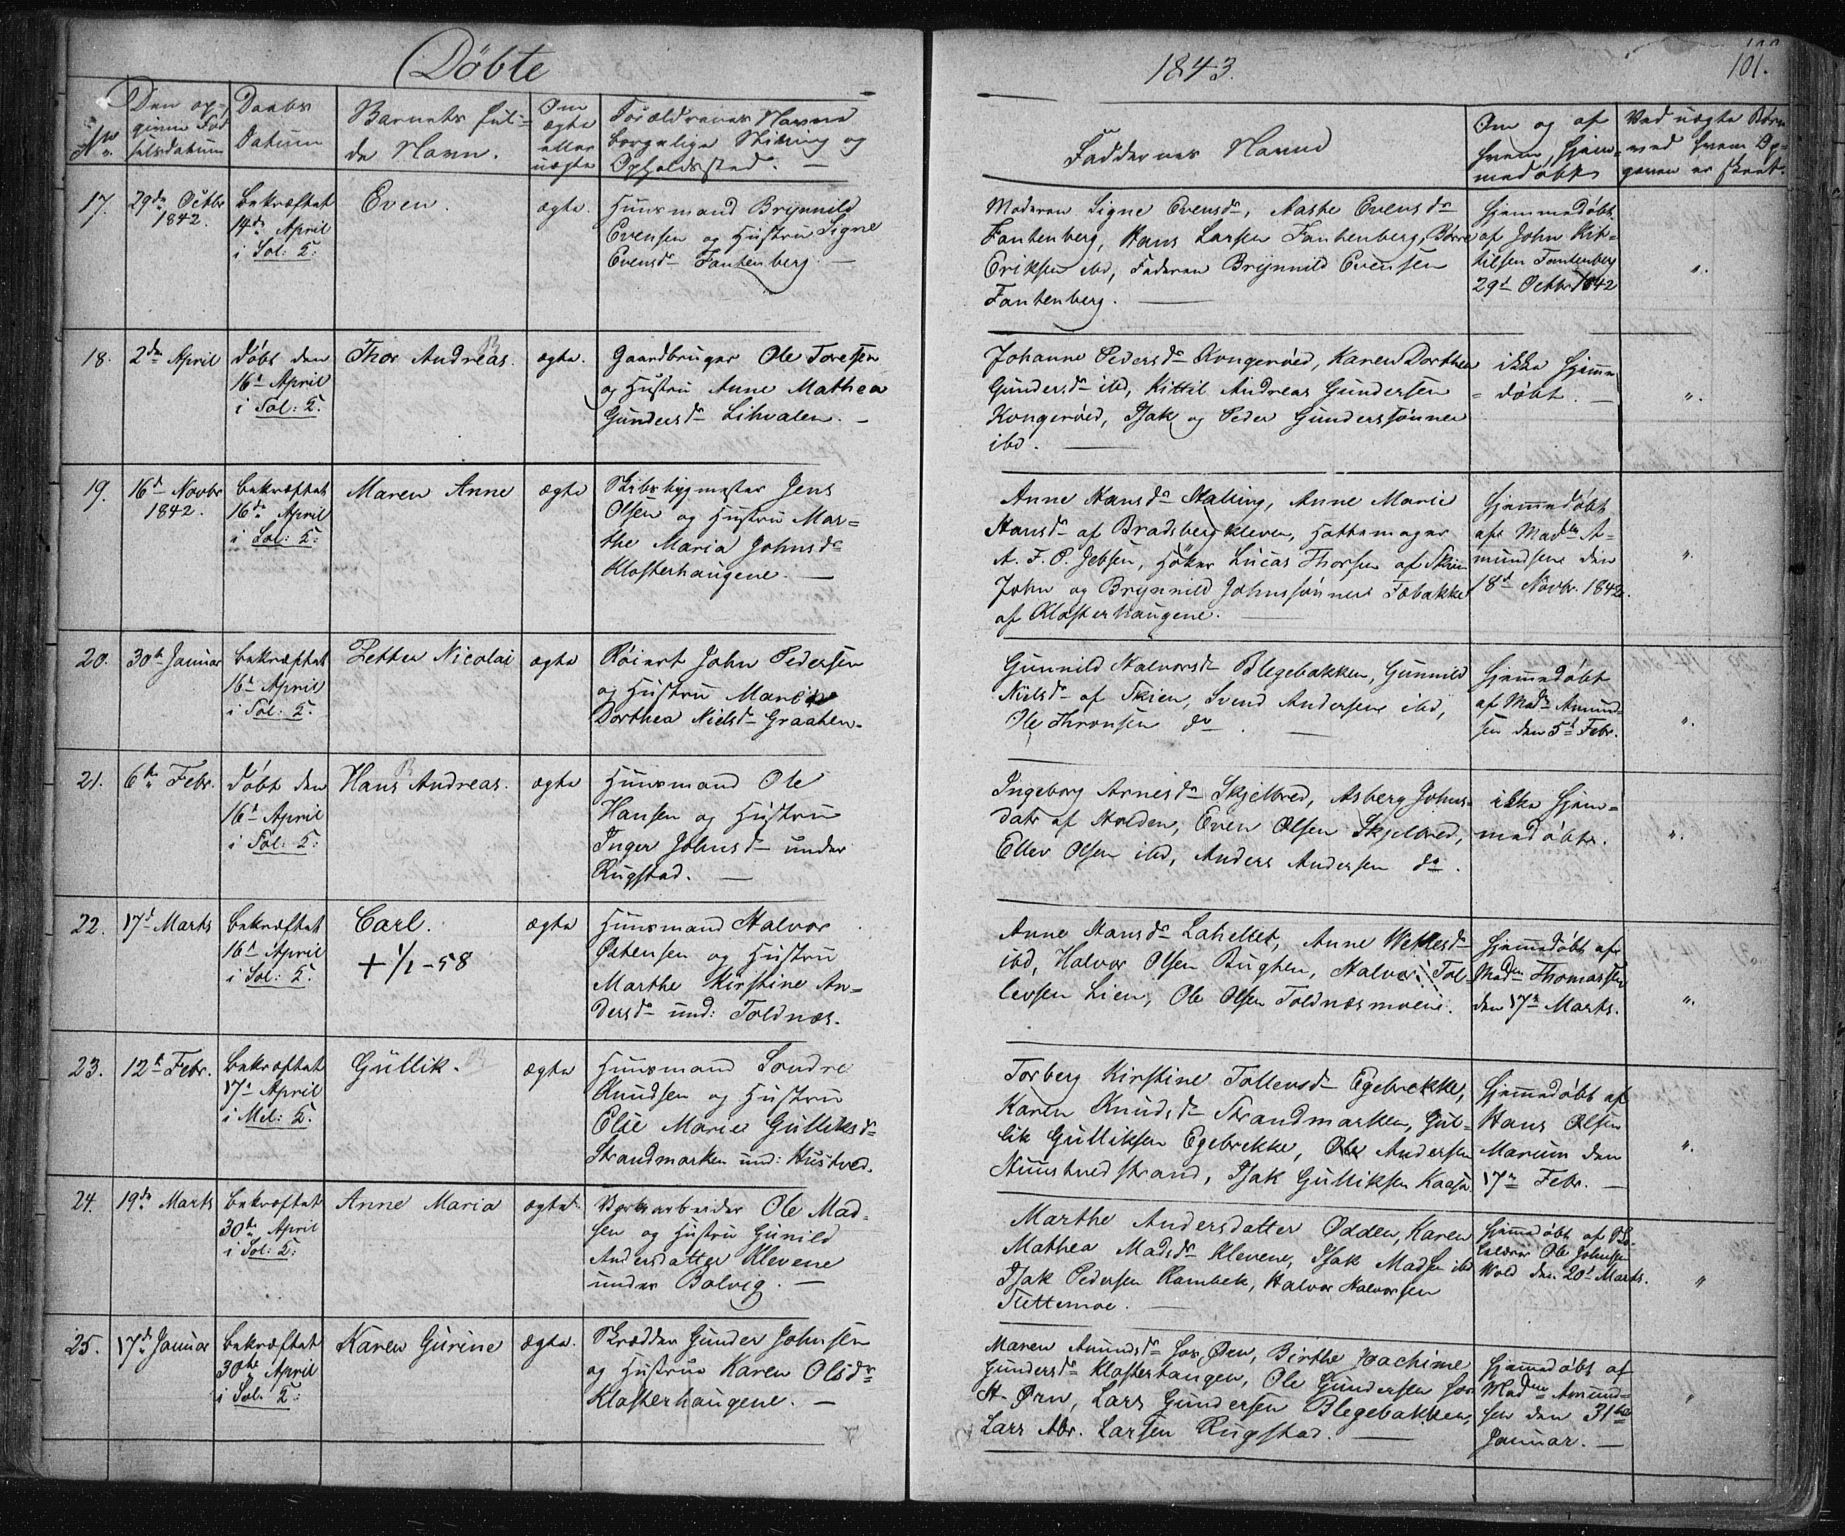 Døbte
1843.
101.
No
Den op-
givne Fød
selsdatum
Daabs
Datum
Barnets ful-
de Navn.
Om
ægte
eller
uægte
Forældrenes Navne
borgerlige Stilling og
Opholdssted.
Faddernes Navne
Om og af
hvem hjem-
medøbt
Ved uægte Børn
ved hvem Op-
gaven er skeet.
17.
29de Octbr
1842.
bekræftet
14de April
i Sol: K:
Even.
ægte.
Huusmand Brynnild
Evensen og Hustru Signe
Evensdr Fantenberg. —
Moderen Signe Evensdr, Aaste Evensdr
Fantenberg, Hans Larsen Fantenberg, Børre
Eriksen ibd, Faderen Brynnild Evensen
Fantenberg. —
hjemmedøbt
af John Kit-
tilsen Fantenberg
29d Octbr 1842
"
18.
2den April
døbt den
16d April
i Sol: K.
Thor Andreas.
ægte.
Gaardbruger Ole Toresen
og Hustru Anne Mathea
Gundersdr Lihvalen. —
Johanne Pedersdr Kongerøed, Karen Dorthea
Gundersdr ibd, Kittil Andreas Gundersen
Kongerøed, Isak og Peder Gunderssønner
ibd. —
ikke hjemme
= døbt. —
".
19.
16d Novbr
1842.
bekræftet
16de April
i Sol: K:
Maren Anne
ægte
Skibsbygmester Jens
Olsen og Hustru Mar=
the Maria Johnsdr
Klosterhaugene. —
Anne Hansdr Stalling, Anne Marie
Hansdr af Bradsbergkleven, Hattemager
A. F. P. Jebsen, Høker Lucas Thorsen af Skien
John og Brynnild Johnssønner Fæbakke
af Klosterhaugene. —
hjemmedøbt
afr Madm A-
mundsen den
18d Novbr. 1842.
"
20.
30te Januar
bekræftet
16d April
i Sol: K.
Petter Nicolai
ægte
Røiert John Pedersen
og Hustru Maren
Dorthea Nielsdr Graaten.
Gunnild Halvorsdr Blegebakken, Gunnild
Nielsdr af Skien, Svend Andersen ibd,
Ole Thronsen do. —
hjemmedøbt
af Madm Amund-
sen den 5d Febr.
".
21.
6te Febr.
døbt den
16d April
i Sol: K:
Hans Andreas.
ægte
Huusmand Ole
Hansen og Hustru
Inger Johnsdr under
Rugstad. —
Ingeborg Arnesdr Skjelbred, Asberg Johns-
datr af Holden, Even Olsen Skjelbred,
Ellev Olsen ibd, Anders Andersen do.
ikke hjem=
medøbt.
".
22.
17d Marts
bekræftet
16d April
i Sol: K.
Carl.
+ 1/1 - 58
ægte
Huusmand Halvor
Østensen og Hustru
Marthe Kirstine An-
dersdr und: Toldnæs.
Anne Hansdr Lahellet, Anne Wetlesdr
ibd, Halvor Olsen Bugten, Halvor Tol-
levsen Lien, Ole Olsen Toldnæsmoene.
hjemmedøbt afr
Madm Thomassen
den 17de Marts.
"
23.
12te Febr.
bekræftet
17d April
i Mel: K.
Gullik.
ægte
Huusmand Sondre
Knudsen og Hustru
Elie Marie Gulliksdr
Strandmarken und: Hustved.
Torberg Kirstine Tollevsdr Egebrekke,
Karen Knudsdr Strandmarken, Gul-
lik Gulliksen Egebrekke, Ole Andersen
Nuustvedstrand, Isak Gulliksen Kaasa.
hjemmedøbt af
Hans Olsen
Marum den
17de Febr. —
".
24.
19de Marts
bekræftet
30te April
i Sol: K:
Anne Maria
ægte.
Værksarbeider Ole Mad-
sen og Hustru Gunild
Andersdatter Klevene
under Bolvig. —
Marthe Andersdatter Odden, Karen
Mathea Madsdr Klevene, Isak Madsen ibd
Isak Pedersen Rambek, Halvor Halvorsen
Tuttemoe. —
hjemmedøbt af Sko-
lelærer Ole Johnsen
Wold den 20d Marts.
"
25.
17de Januar
bekræftet
30te April
i Sol. K:
Karen Gurine
ægte.
Skrædder Gunder Johnsen
og Hustrue Karen Olsdr
Klosterhaugene. —
Maren Amundsdr Øen, Birthe Joachime
Gundersdr Klosterhaugen, Ole Gundersen
Lars Gundersen Blegebakken,
Lars Abr. Larsen Rugstad. —
hjemmedøbt af
Madme Amund-
sen den 31te
Januar. —
"